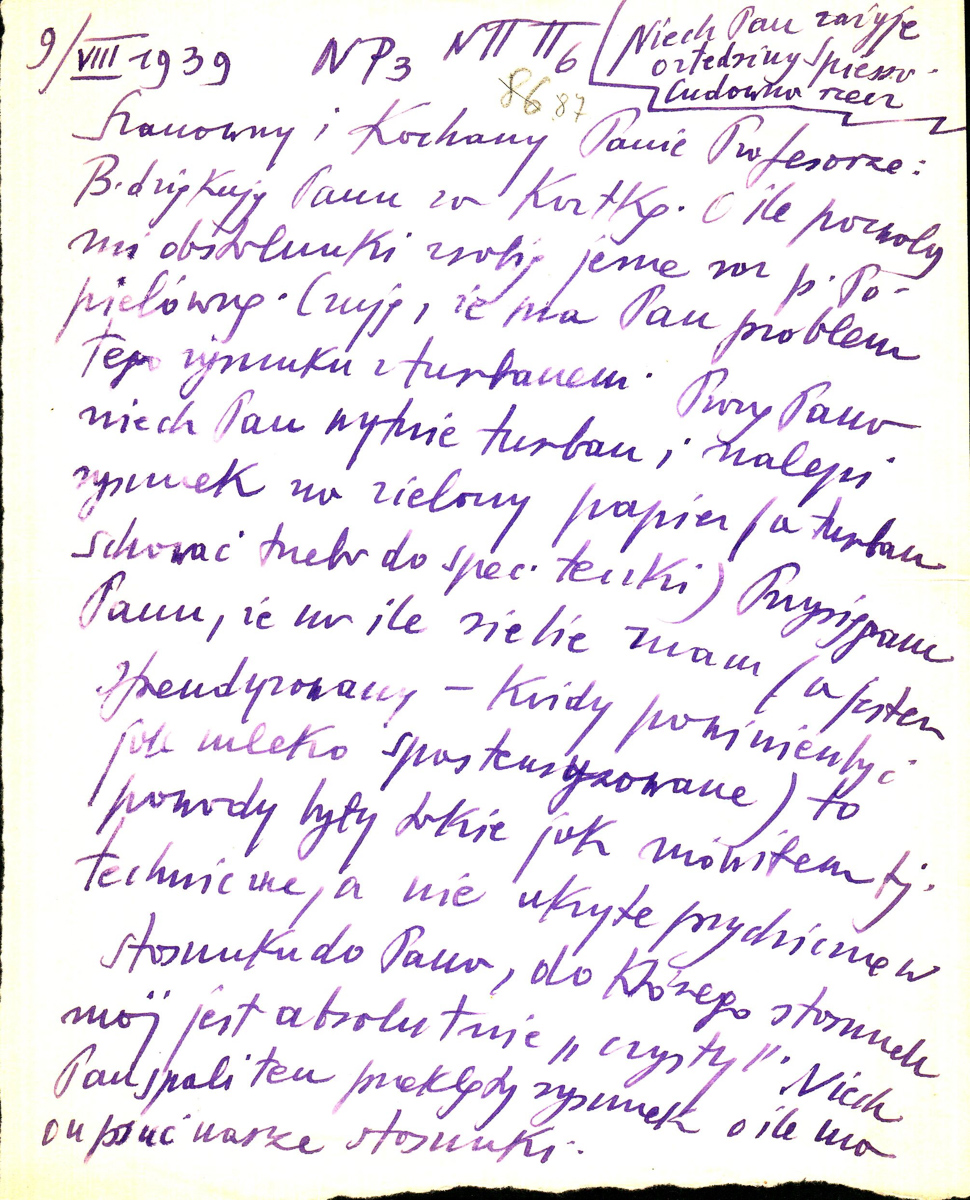 9/VIII 1939 NP3 NΠ Π6
Niech Pan zażyje
ortedziny Spiessa.
Cudowna rzecz
86 87
Szanowny i Kochany Panie Profesorze:
B. dziękuję Panu za Kartkę. O ile pozwolą
mi obstalunki zrobię jeszcze raz p. Po-
pielównę. Czuję, że ma Pan problem
tego rysunku z turbanem. Proszę Pana
niech Pan wytnie turban i nalepi
rysunek na zielony papier (a turban
schować trzeba do spec. teczki) Przysięgam
Panu, że na ile siebie znam (a jestem
spendyzowany – każdy powinien być
jak mleko spasteuryzowane) to
powody były takie jak mówiłem tj.
techniczne, a nie ukryte psychiczne w
stosunku do Pana, do którego stosunek
mój jest absolutnie „czysty”. Niech
Pan spali ten przeklęty rysunek o ile ma
on psuć nasze stosunki.